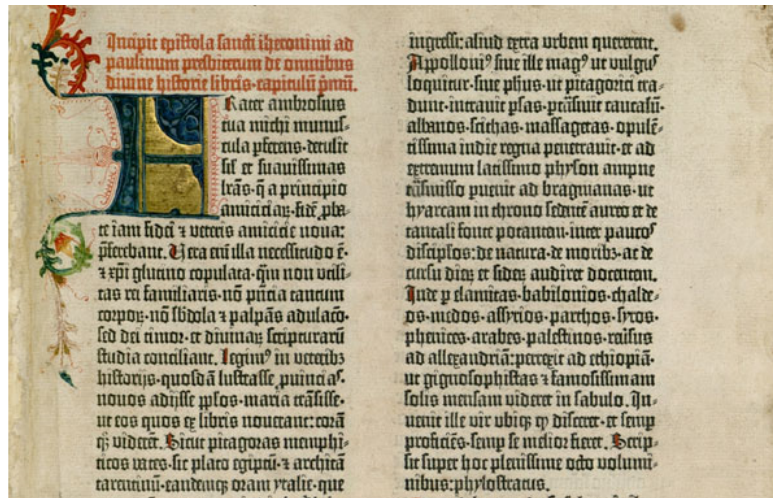 Incipit epistola sancti iheronimi ad
paulinum presbiterum de omnibus
divine historie libris·capitulū p̄mū.
Frater ambrosius
tua michi munus-
cula ꝑferens·detulit
sil̄ et suavissimas
lr̄as·q̄ a principio
amiciciaꝝ·fidē ꝓba-
te iam fidei ⁊ veteris amicicie nova:
p̄ferebant. Vera em̄ illa necessitudo ē·
⁊ xp̄i glutino copulata·q̄m non utili-
tas rei familiaris·nō p̄ncia tantum
corpoꝝ·nō sb̄dola ⁊ palpās adulacō·
sed dei timor·et divinaꝝ scripturarū
studia conciliant. Legimꝰ in veteribꝫ
historijs·quosdā lustrasse ꝓvinciaˢ·
novos adijsse ppl̄os·maria trāsisse·
ut eos quos ex libris noverant: corā
qꝫ viderēt. Sicut pitagoras memphi-
ticos vates·sic plato egiptū·⁊ architā
tarentinū·eandemqꝫ oram ytalie·que
ingressi: aliud extra urbem quererent.
Appolloniꝰ sive ille magꝰ ut vulgꝰ
loquitur·sive ph̄us·ut pitagorici tra-
dunt·intravit ꝑsas·ptrāsivit caucasū·
albanos·scithas·massagetas·opulē-
tissima indie regna penetravit·et ad
extremum latissimo physon ampne
trāsmisso ꝑvenit ad bragmanas·ut
hyarcam in throno sedentē aureo et de
tantali fonte potantem·inter paucoˢ
discipl̄os: de natura·de moribꝫ·ac de
cursu dieꝝ et sideꝝ audiret docentem.
Inde ꝑ elamitas·babilonios·chalde-
os·medos·assyrios·parthos·syros·
phenices·arabes·palestinos·reversus
ad allexandriā: perrexit ad ethiopiā·
ut gignosophistas ⁊ famosissimam
solis mensam videret in sabulo. In-
venit ille vir ubiqꝫ qd̄ disceret·et semꝑ
proficiēs·semꝑ se melior fieret. Scrip-
sit super hoc plenissime octo volumi-
nibus: phylostratus.